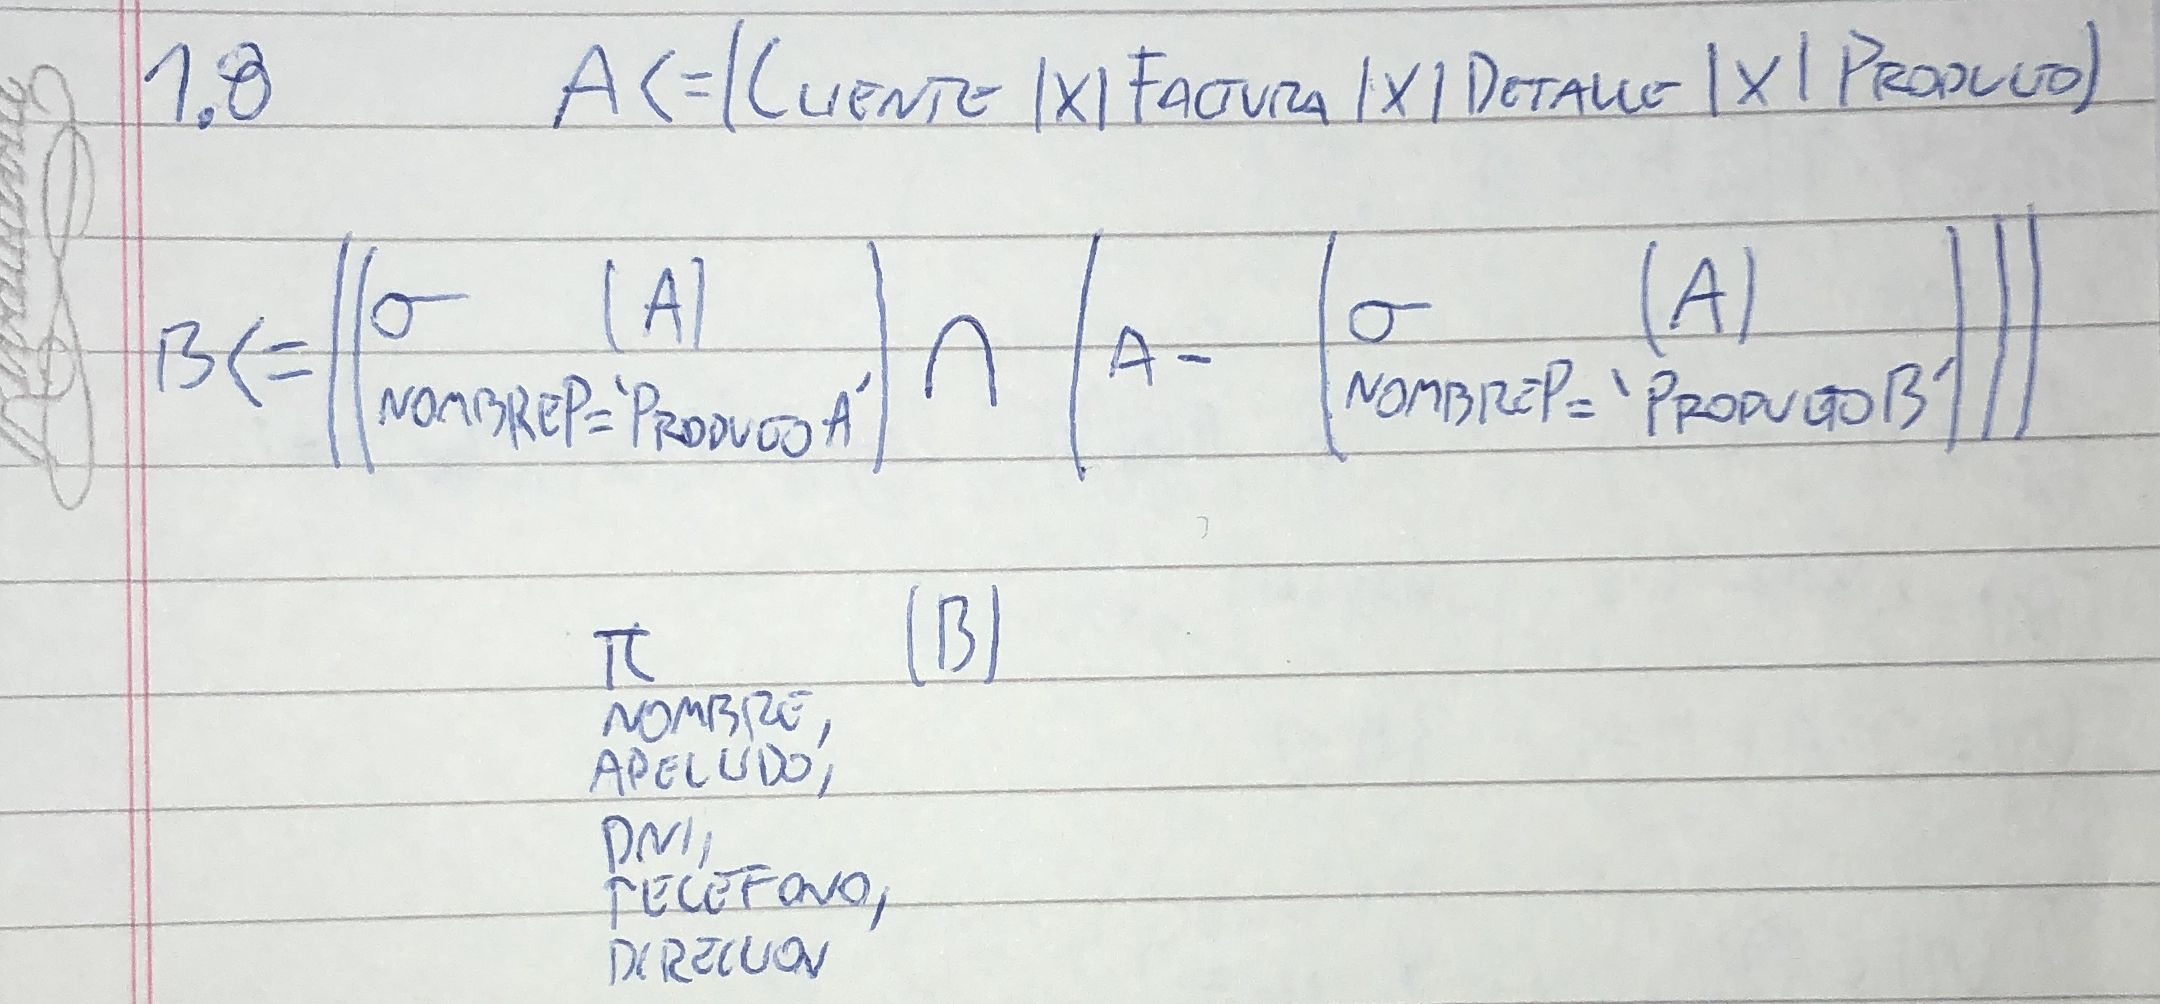 1.8 A <= (CLIENTE |X| FACTURA |X| DETALLE |X| PRODUCTO)
B <= ((σ (A) ) ∩ (A - (σ (A) )))
NOMBREP='PRODUCTOA' NOMBREP='PRODUCTOB'
π (B)
NOMBRE,
APELLIDO,
DNI,
TELEFONO,
DIRECCION